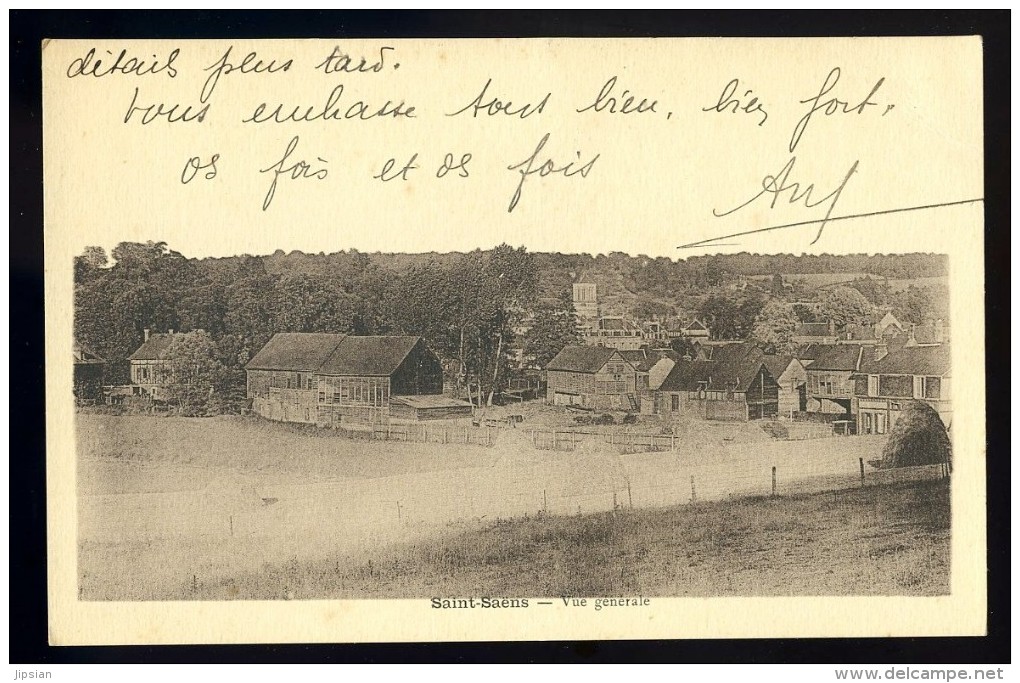 détails plus tard.
vous embrasse tous bien, bien fort,
os fois et os fois
Saint-Saëns — Vue générale
jipsian
http://www.delcampe.net